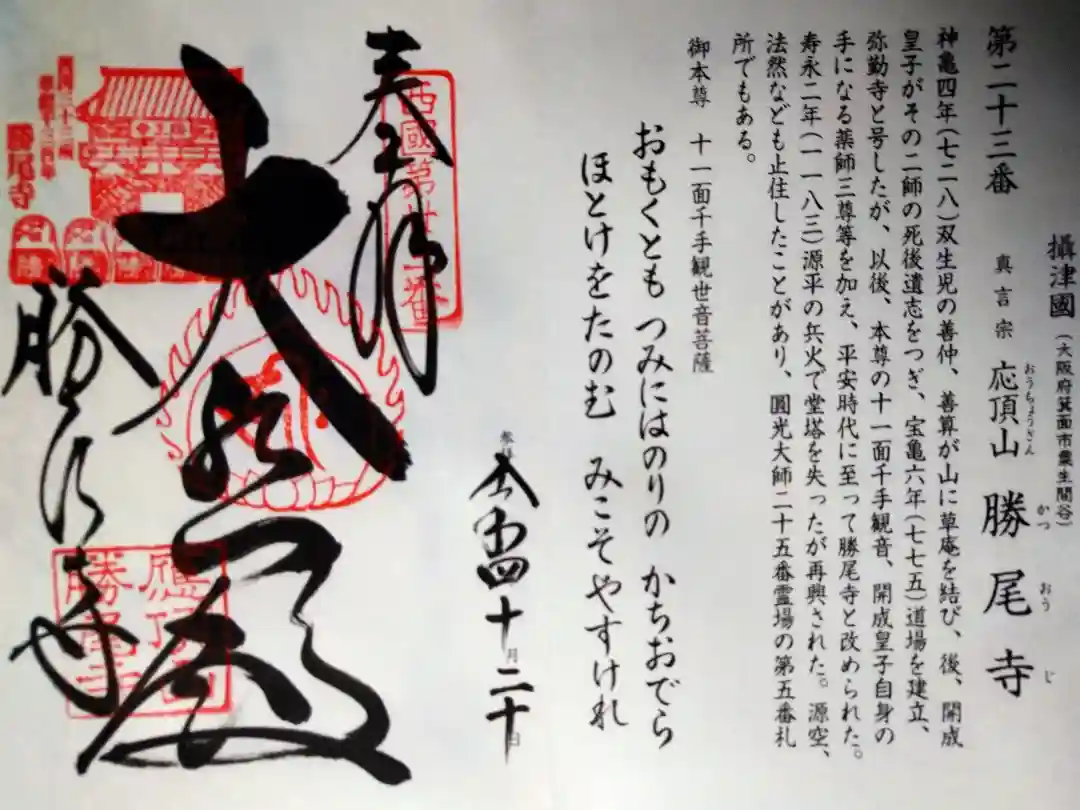 攝津國(大阪府箕面市粟生間谷)
第二十三番 真言宗 応頂山 勝尾寺
おうちょうざん かつ おう じ
神亀四年(七二八)双生児の善仲、善算が山に草庵を結び、後、開成
皇子がその二師の死後遺志をつぎ、宝亀六年(七七五)道場を建立、
弥勒寺と号したが、以後、本尊の十一面千手観音、開成皇子自身の
手になる薬師三尊等を加え、平安時代に至って勝尾寺と改められた。
寿永二年(一一八三)源平の兵火で堂塔を失ったが再興された。源空、
法然なども止住したことがあり、圓光大師二十五番霊場の第五番札
所でもある。
御本尊 十一面千手観世音菩薩
おもくとも つみにはのりの かちおでら
ほとけをたのむ みこそやすけれ
十月二十日
奉拝
西國第廿三番
大悲殿
勝尾寺
勝尾寺
應頂山
勝尾寺